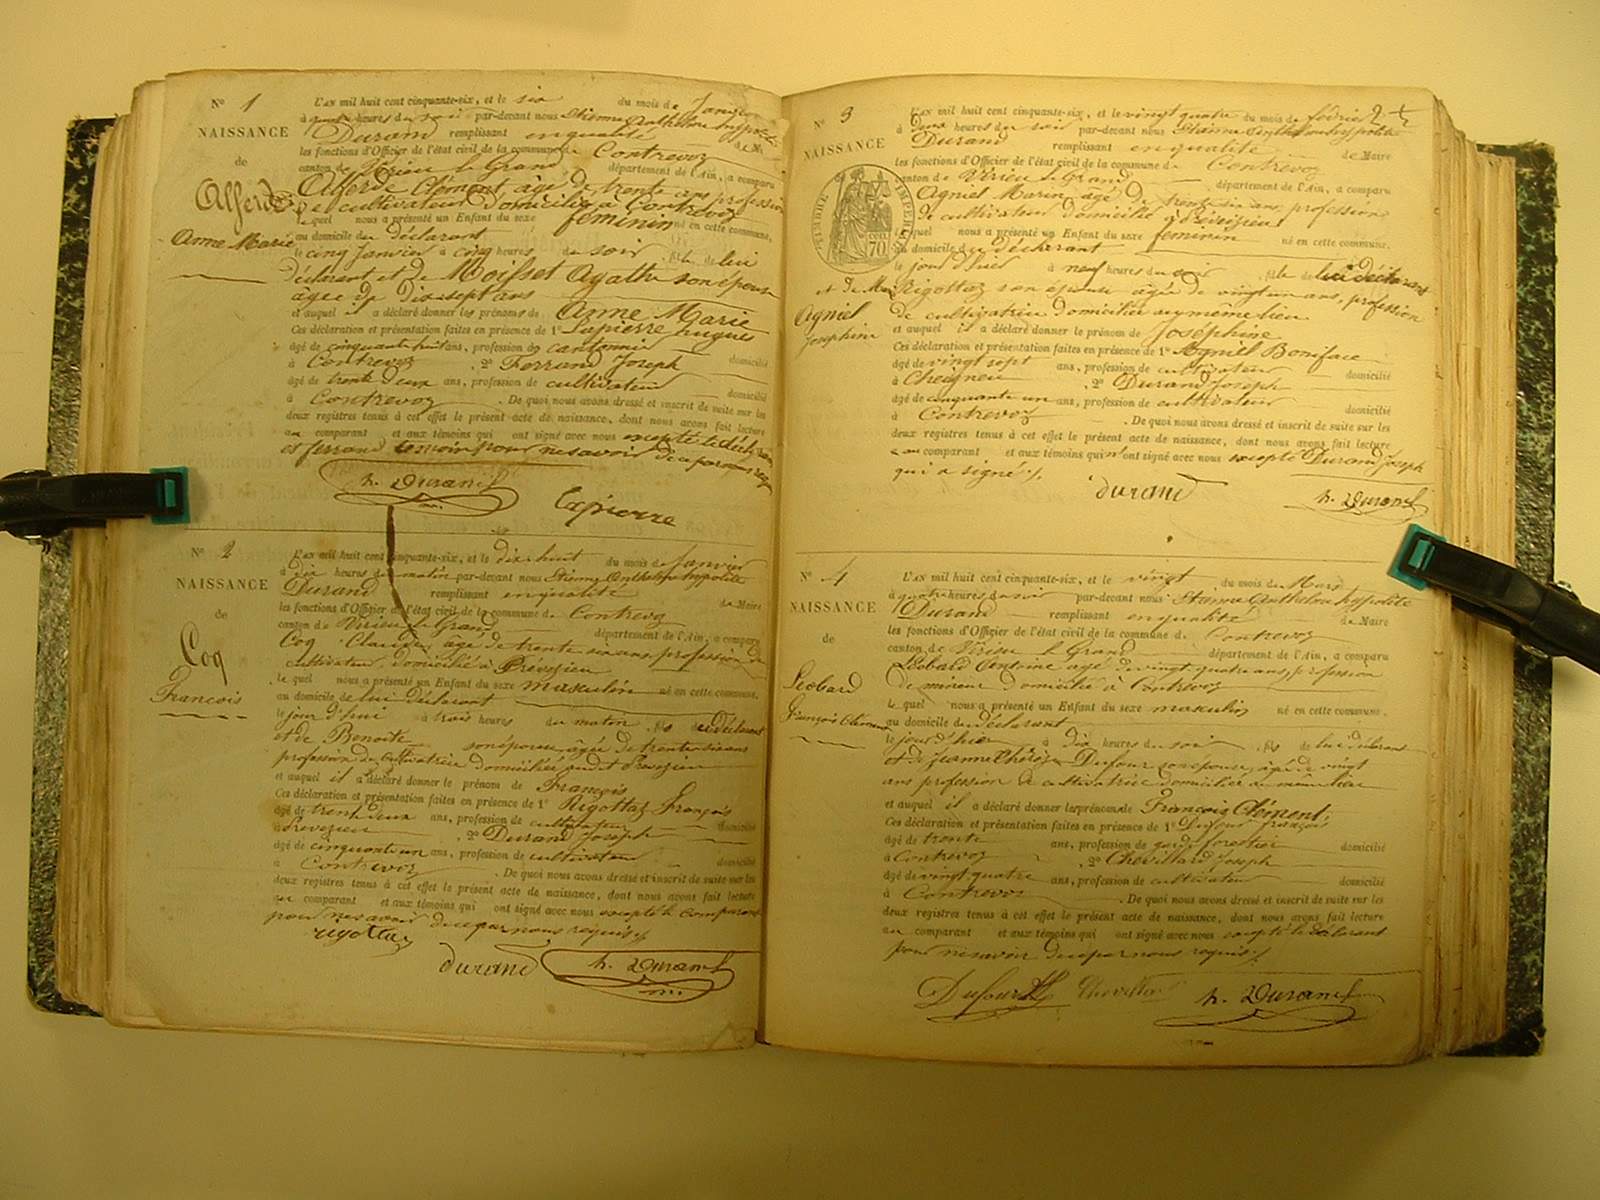 N° 1
NAISSANCE
de
Alferde
Anne Marie
L'AN mil huit cent cinquante-six, et le six du mois de Janvier
à quatre heures du soir par-devant nous Etienne Anthelme hypolite
Durand remplissant en qualité de M
les fonctions d'Officier de l'état civil de la commune de Contrevoz
canton de Virieu le Grand département de l'Ain, a comparu
Alferde Clément, âgé de trente ans profession
de cultivateur domicilié à Contrevoz
le quel nous a présenté un Enfant du sexe féminin né en cette commune,
au domicile du déclarant
le cinq Janvier à cinq heures du soir, fille de lui
déclarant et de Moisset Agathe son épouse
âgée de Dix sept ans
et auquel il a déclaré donner les prénoms de Anne Marie
Ces déclaration et présentation faites en présence de 1° Lapierre hugues
âgé de cinquante huit ans, profession de cantonnier
à Contrevoz, 2° Ferrand Joseph domicilié
âgé de trente deux ans, profession de cultivateur domicilié
à Contrevoz. De quoi nous avons dressé et inscrit de suite sur les
deux registres tenus à cet effet le présent acte de naissance, dont nous avons fait lecture
au comparant et aux témoins qui ont signé avec nous excepté le déclarant
et ferrand temoin pour ne savoir de ce par nous requis
h. Durand
Lapierre
N° 2
NAISSANCE
de
Coq
François
L'AN mil huit cent cinquante-six, et le dix huit du mois de Janvier
à dix heures du matin par-devant nous Etienne Anthelme hypolite
Durand remplissant en qualité de Maire
les fonctions d'Officier de l'état civil de la commune de Contrevoz
canton de Virieu le Grand département de l'Ain, a comparu
Coq Claude, âgé de trente six ans, profession de
cultivateur, domicilié à Prévezieu
le quel nous a présenté un Enfant du sexe masculin né en cette commune,
au domicile de lui Déclarant
le jour d'hui à trois heures du matin, fils de déclarant
et de Benoite son épouse, âgée de trente six ans
profession de cultivatrice domiciliée audit Prévezieu
et auquel il a déclaré donner le prénom de François
Ces déclaration et présentation faites en présence de 1° Rigottaz François
âgé de trente deux ans, profession de cultivateur domicilié
à Prevezieu, 2° Durand Joseph
âgé de cinquante un ans, profession de cultivateur domicilié
à Contrevoz. De quoi nous avons dressé et inscrit de suite sur les
deux registres tenus à cet effet le présent acte de naissance, dont nous avons fait lecture
au comparant et aux témoins qui ont signé avec nous excepté le comparant
pour ne savoir de ce par nous requis
rigottaz
durand
h. Durand
N° 3
NAISSANCE
TIMBRE IMPERIAL
70
Agniel
Joséphine
L'AN mil huit cent cinquante-six, et le vingt quatre du mois de février
à deux heures du soir par-devant nous Etienne Anthelme hypolite
Durand remplissant en qualité de Maire
les fonctions d'Officier de l'état civil de la commune de Contrevoz
canton de Virieu le Grand département de l'Ain, a comparu
Agniel Marin, âgé de trente six ans, profession
de cultivateur domicilié à Prévezieu
lequel nous a présenté un Enfant du sexe féminin né en cette commune,
au domicile du déclarant
le jour d'hier à neuf heures du soir, fille de lui déclarant
et de Rigottaz son épouse âgée de vingt un ans, profession
de cultivatrice domiciliée au même lieu
et auquel il a déclaré donner le prénom de Joséphine
Ces déclaration et présentation faites en présence de 1° Agniel Boniface
âgé de vingt sept ans, profession de cultivateur domicilié
à Cheignieu, 2° Durand Joseph
âgé de cinquante un ans, profession de cultivateur domicilié
à Contrevoz. De quoi nous avons dressé et inscrit de suite sur les
deux registres tenus à cet effet le présent acte de naissance, dont nous avons fait lecture
au comparant et aux témoins qui n'ont signé avec nous excepté Durand Joseph
qui a signé
durand
h. Durand
N° 4
NAISSANCE
de
Léobard
François Clément
L'AN mil huit cent cinquante-six, et le vingt du mois de Mars
à quatre heures du soir par-devant nous Etienne Anthelme hypolite
Durand remplissant en qualité de Maire
les fonctions d'Officier de l'état civil de la commune de Contrevoz
canton de Virieu le Grand département de l'Ain, a comparu
Léobard Antoine agé de vingt quatre ans, profession
de mineur domicilié à Contrevoz
le quel nous a présenté un Enfant du sexe masculin né en cette commune,
au domicile du déclarant
le jour d'hier à dix heures du soir, fils de lui déclarant
et de Jeanne Thérèze Dufour son épouse, âgée de vingt
ans profession de cultivatrice domiciliée au même lieu
et auquel il a déclaré donner les prénoms de François Clément,
Ces déclaration et présentation faites en présence de 1° Dufour françois
âgé de trente ans, profession de garde forestier domicilié
à Contrevoz, 2° Chevillard Joseph
âgé de vingt quatre ans, profession de cultivateur domicilié
à Contrevoz. De quoi nous avons dressé et inscrit de suite sur les
deux registres tenus à cet effet le présent acte de naissance, dont nous avons fait lecture
au comparant et aux témoins qui ont signé avec nous excepté le déclarant
pour ne savoir de ce par nous requis
Dufour
Chevillard
h. Durand